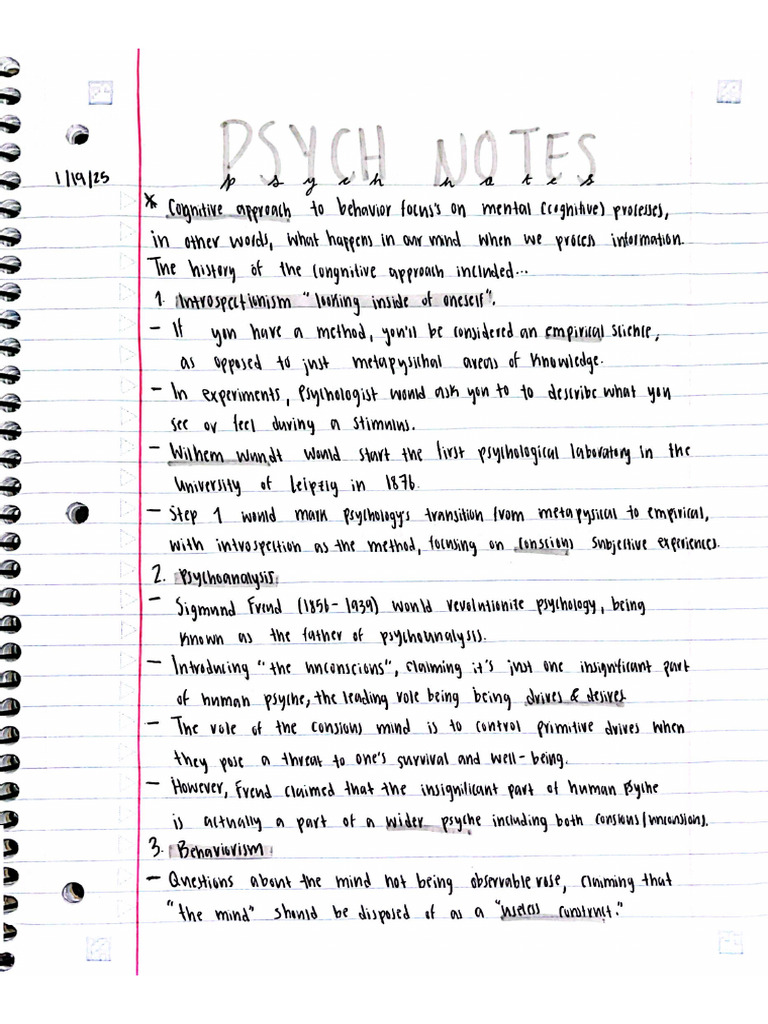 PSYCH NOTES
psych notes
1/19/25
* Cognitive approach to behavior focus's on mental (cognitive) processes,
in other words, what happens in our mind when we process information.
The history of the congnitive approach included...
1. Introspectionism "looking inside of oneself".
- If you have a method, you'll be considered an empirical science,
as opposed to just metapysichal areas of knowledge.
- In experiments, Psychologist would ask you to to describe what you
see or feel during a stimulus.
- Wilhem Wundt would start the first psychological laboratory in the
University of Leipzig in 1876.
- Step 1 would mark psychology's transition from metapysical to empirical,
with introspection as the method, focusing on conscious subjective experiences.
2. Psychoanalysis
- Sigmund Freud (1856-1939) would revolutionize psychology, being
known as the father of psychoanalysis.
- Introducing "the unconscious", claiming it's just one insignificant part
of human psyche, the leading role being being drives & desires
- The role of the consious mind is to control primitive drives when
they pose a threat to one's survival and well-being.
- However, Freud claimed that the insignificant part of human Psyche
is actually a part of a wider psyche including both consious/unconsious.
3. Behaviorism
- Questions about the mind not being observable rose, claiming that
"the mind" should be disposed of as a "useless construct."